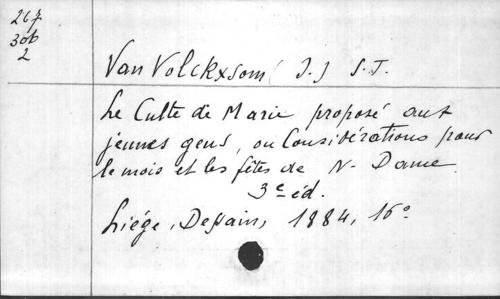 267
306
2
Van Volckxsom (J.) S.J.
Le Culte de Marie proposé aux
jeunes gens, ou Considérations pour
le mois et les fêtes de N. Dame.
3e éd.
Liége, Dessain, 1884, 16°